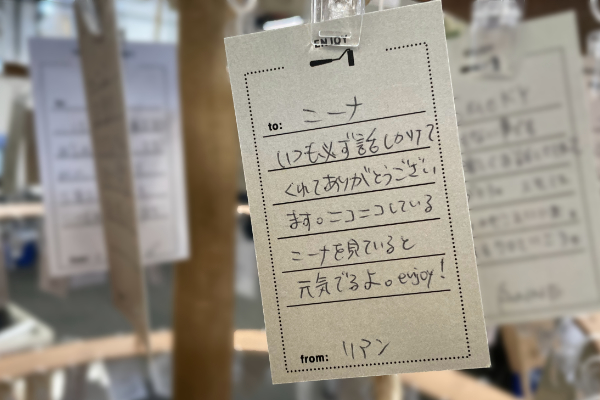 ENJOY
to: ニーナ
いつも必ず話しかけて
くれてありがとうござい
ます。ニコニコしている
ニーナを見ていると
元気でるよ。enjoy!
from: リアン